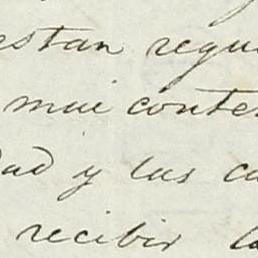 estan regu
mui conte
dad y lus cu
recibir la